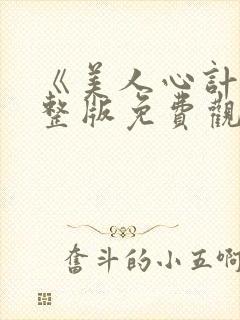 《美人心計
整版免費觀
奮斗的小五啊